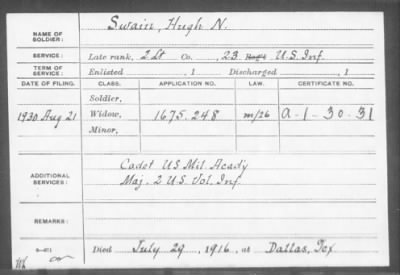 NAME OF SOLDIER: Swain, Hugh N.
SERVICE: Late rank, 2 Lt Co. 23 Reg't U.S. Inf.
TERM OF SERVICE: Enlisted , 1 Discharged , 1
DATE OF FILING. CLASS. APPLICATION NO. LAW. CERTIFICATE NO.
Soldier,
1930 Aug 21 Widow, 1675.248 m/26 A-1-30-31
Minor,
ADDITIONAL SERVICES: Cadet US Mil. Acady
Maj. 2 U.S. Vol. Inf.
REMARKS:
Died July 29, 1916, at Dallas, Tex